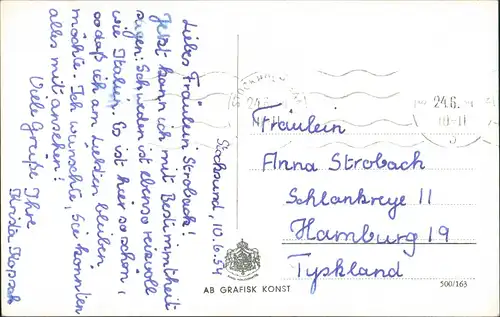 Stocksund, 10.6.54
Liebes Fräulein Strobach!
Jetzt kann ich mit Bestimmtheit
sagen: Schweden ist ebenso reizvoll
wie Italien. Es ist hier so schön,
sodaß ich am liebsten bleiben
möchte. Ich wünschte, Sie könnten
alles mit ansehen!
Viele Grüße Ihre
24.6.
10-11
Fräulein
Anna Strobach
Schlankreye 11
Hamburg 19
Tyskland
AB GRAFISK KONST
500/163